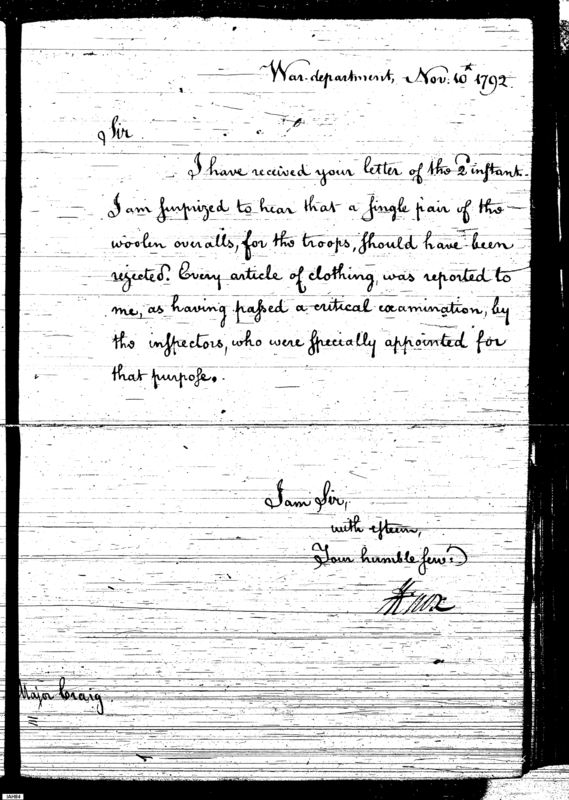 War-department, Nov. 10th 1792.
Sir
I have received your letter of the 2d instant.
I am surprized to hear that a single pair of the
woolen overalls, for the troops, should have been
rejected. Every article of clothing, was reported to
me, as having passed a critical examination, by
the inspectors, who were specially appointed for
that purpose.
I am Sir,
with esteem,
Your humble servt.
HKnox
Major Craig.
IAH84